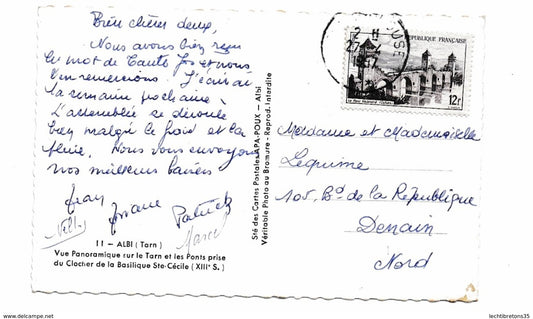 Bien chères deux,
Nous avons bien reçu
le mot de Tante et nous
l'en remercions. J'écrirai
la semaine prochaine.
L'assemblée se déroule
bien malgré le froid et la
pluie. Nous vous envoyons
nos meilleurs baisers
Jean
Josiane
Patrick
11 - ALBI (Tarn)
Vue Panoramique sur le Tarn et les Ponts prise
du Clocher de la Basilique Ste-Cécile (XIIIe S.)
Sté des Cartes Postales APA-POUX - Albi
Véritable Photo au Bromure - Reprod. Interdite
2 H
27
1957
OUSE
REPUBLIQUE FRANÇAISE
12f
Madame et Mademoiselle
Lequime
105, Bd de la République
Denain
Nord
www.delcampe.net
lechtibretons35